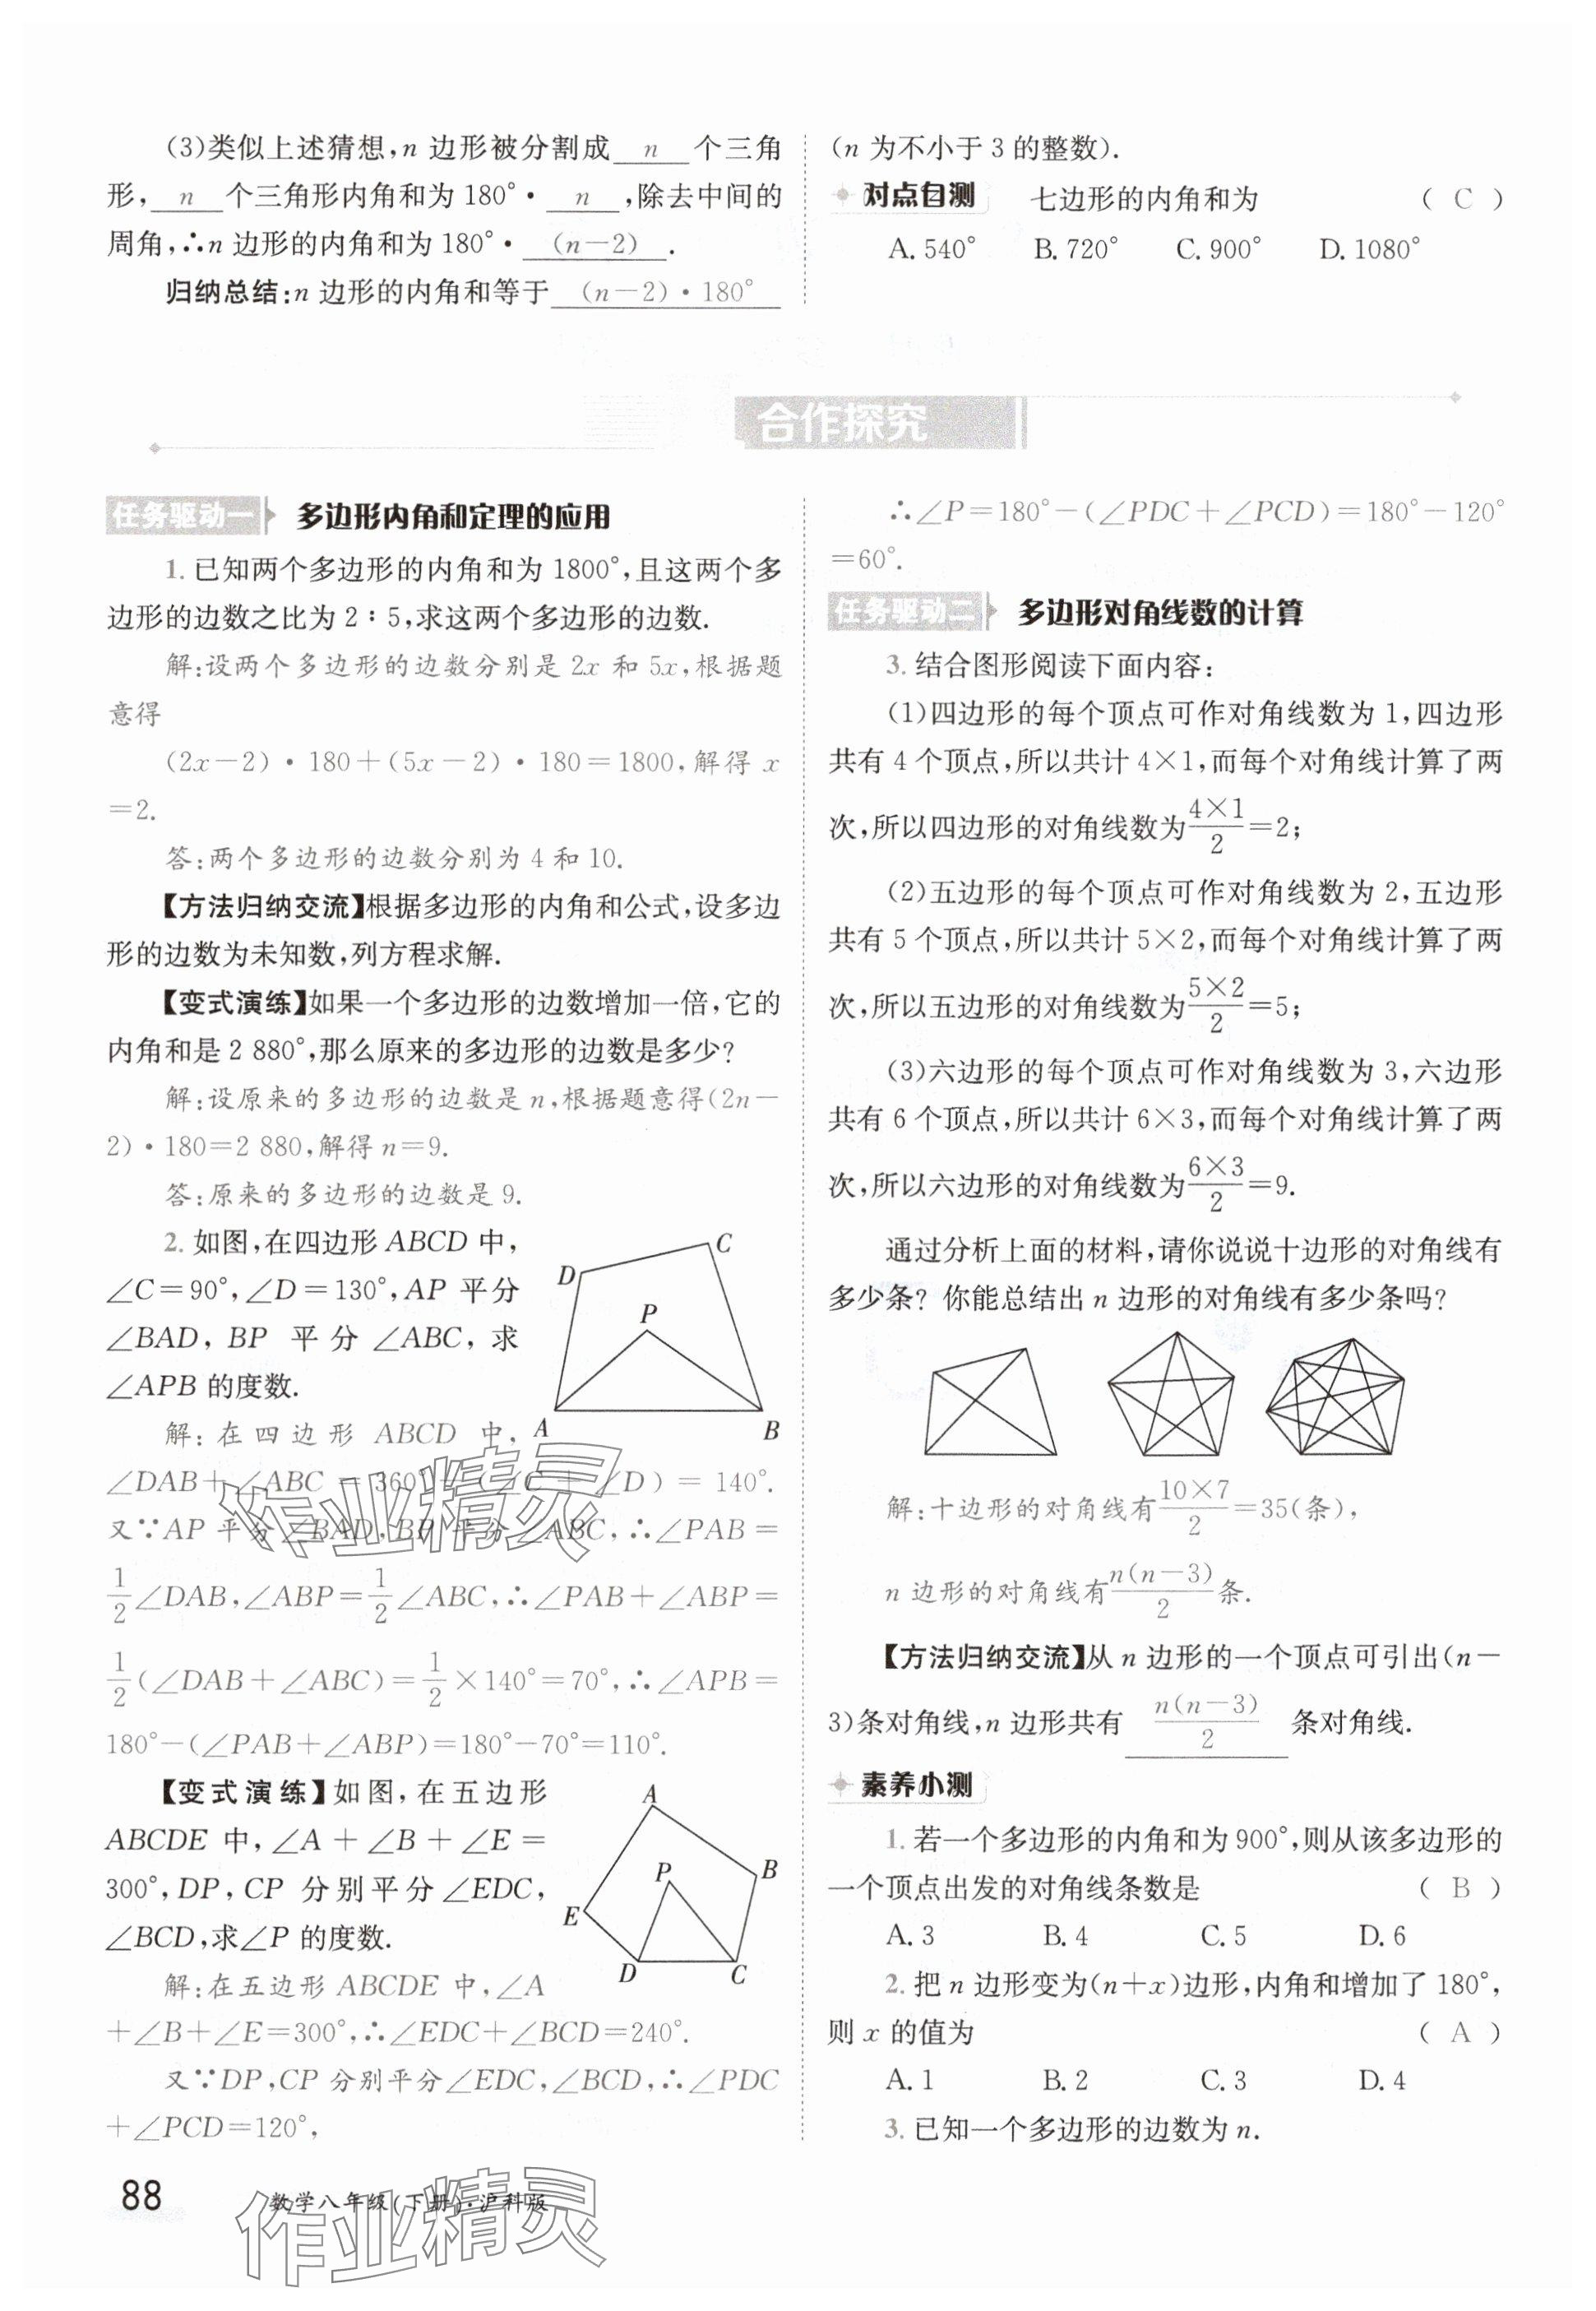 (3)类似上述猜想,n 边形被分割成 n 个三角
形, n 个三角形内角和为 180°· n ,除去中间的
周角,∴n 边形的内角和为 180°· (n-2) .
归纳总结:n 边形的内角和等于 (n-2)·180°
(n 为不小于 3 的整数).
对点自测 七边形的内角和为 ( C )
A. 540° B. 720° C. 900° D. 1080°
合作探究
任务驱动一 多边形内角和定理的应用
1. 已知两个多边形的内角和为 1800°,且这两个多
边形的边数之比为 2∶5,求这两个多边形的边数.
解:设两个多边形的边数分别是 2x 和 5x,根据题
意得
(2x-2)·180+(5x-2)·180=1800,解得 x
=2.
答:两个多边形的边数分别为 4 和 10.
【方法归纳交流】根据多边形的内角和公式,设多边
形的边数为未知数,列方程求解.
【变式演练】如果一个多边形的边数增加一倍,它的
内角和是 2 880°,那么原来的多边形的边数是多少?
解:设原来的多边形的边数是 n,根据题意得(2n-
2)·180=2 880,解得 n=9.
答:原来的多边形的边数是 9.
2. 如图,在四边形 ABCD 中,
∠C=90°,∠D=130°,AP 平分
∠BAD, BP 平分 ∠ABC, 求
∠APB 的度数.
D C P A B
解: 在四边形 ABCD 中,
∠DAB+∠ABC = 360°-(∠C+∠D) = 140°.
又∵AP 平分∠BAD,BP 平分∠ABC,∴∠PAB=
1/2∠DAB,∠ABP=1/2∠ABC,∴∠PAB+∠ABP=
1/2(∠DAB+∠ABC)=1/2×140°=70°,∴∠APB=
180°-(∠PAB+∠ABP)=180°-70°=110°.
【变式演练】如图,在五边形
ABCDE 中,∠A+∠B+∠E=
300°,DP,CP 分别平分∠EDC,
∠BCD,求∠P 的度数.
A B P E D C
解:在五边形 ABCDE 中,∠A
+∠B+∠E=300°,∴∠EDC+∠BCD=240°.
又∵DP,CP 分别平分∠EDC,∠BCD,∴∠PDC
+∠PCD=120°,
∴∠P=180°-(∠PDC+∠PCD)=180°-120°
=60°.
任务驱动二 多边形对角线数的计算
3. 结合图形阅读下面内容:
(1)四边形的每个顶点可作对角线数为 1,四边形
共有 4 个顶点,所以共计 4×1,而每个对角线计算了两
次,所以四边形的对角线数为4×1/2=2;
(2)五边形的每个顶点可作对角线数为 2,五边形
共有 5 个顶点,所以共计 5×2,而每个对角线计算了两
次,所以五边形的对角线数为5×2/2=5;
(3)六边形的每个顶点可作对角线数为 3,六边形
共有 6 个顶点,所以共计 6×3,而每个对角线计算了两
次,所以六边形的对角线数为6×3/2=9.
通过分析上面的材料,请你说说十边形的对角线有
多少条? 你能总结出 n 边形的对角线有多少条吗?
解:十边形的对角线有10×7/2=35(条),
n 边形的对角线有n(n-3)/2条.
【方法归纳交流】从 n 边形的一个顶点可引出(n-
3)条对角线,n 边形共有 n(n-3)/2 条对角线.
素养小测
1. 若一个多边形的内角和为 900°,则从该多边形的
一个顶点出发的对角线条数是 ( B )
A. 3 B. 4 C. 5 D. 6
2. 把 n 边形变为(n+x)边形,内角和增加了 180°,
则 x 的值为 ( A )
A. 1 B. 2 C. 3 D. 4
3. 已知一个多边形的边数为 n.
88 数学八年级(下册)·沪科版
作业精灵
作业精灵